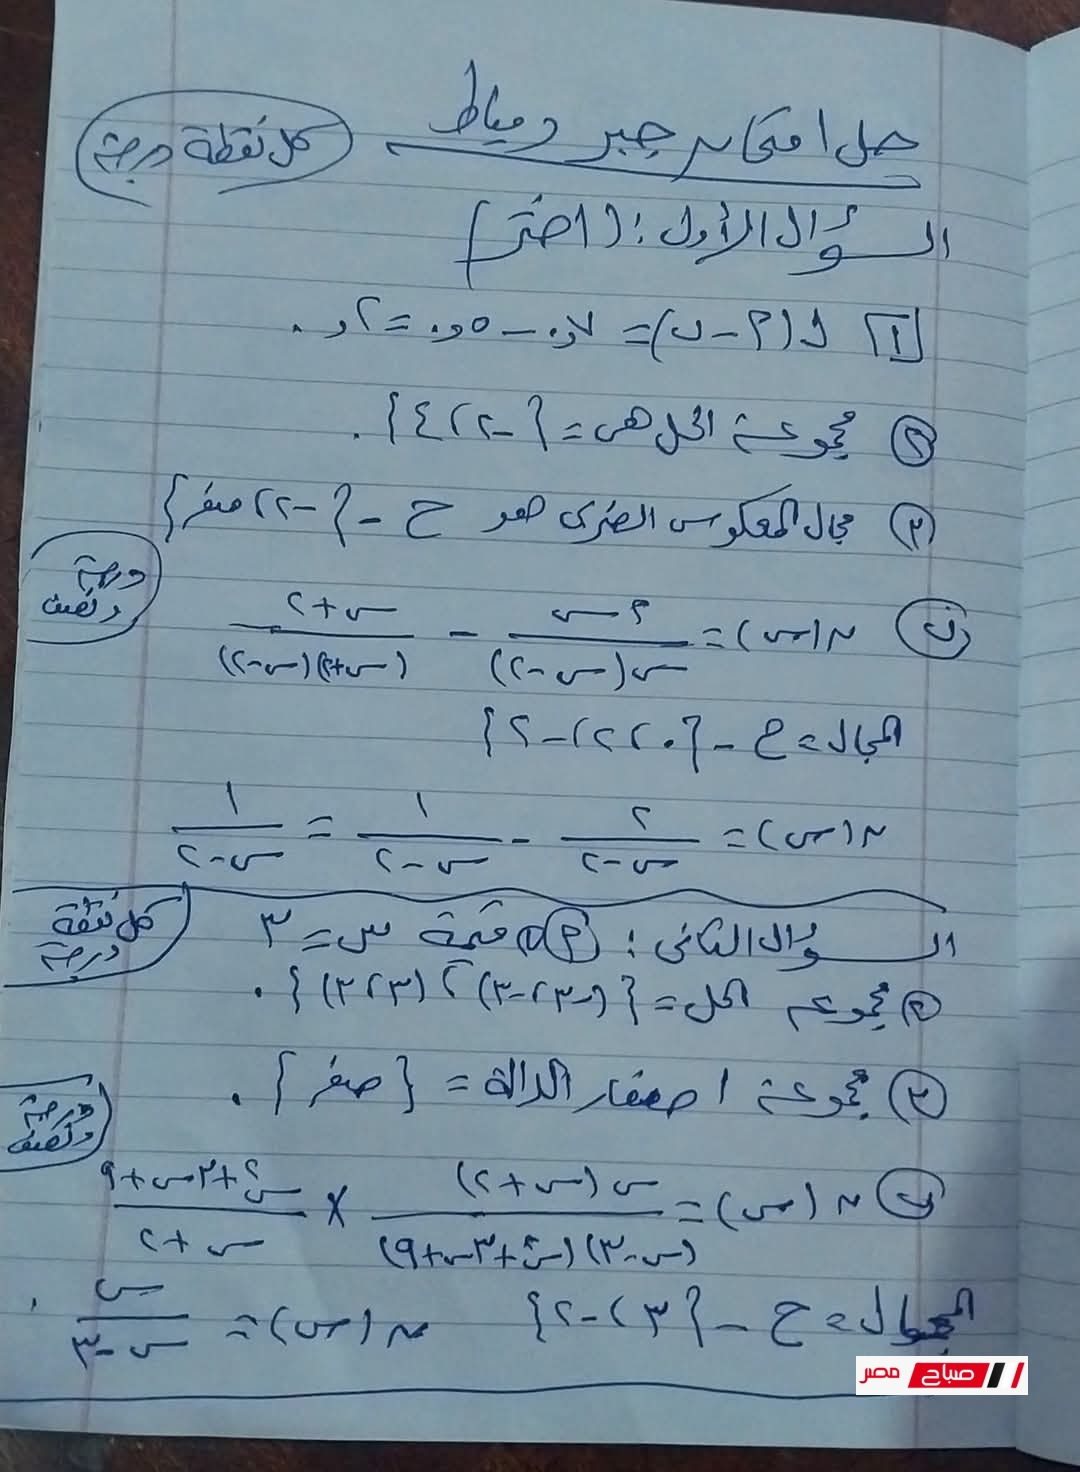 حل امتحان جبر دمياط
كل نقطة درجة
السؤال الأول: (اختر)
[١] ل(٢ - ب) = ٠,٧ - ٠,٥ = ٠,٢
(٢) مجموعة الحل هى = {-٢، ٤}.
(٣) مجال المعكوس الضربى هو ح - {-٢، صفر}
درجة ونصف
(ب) ن(س) = ٢س / س(س-٢) - س+٢ / (س+٢)(س-٢)
المجال = ح - {٠، ٢، -٢}
ن(س) = ٢ / س-٢ - ١ / س-٢ = ١ / س-٢
السؤال الثانى: (٢) (١) قيمة س = ٣
كل نقطة درجة
(٢) مجموعة الحل = {(-٣، -٣)، (٣، ٣)}.
(٣) مجموعة اصفار الدالة = {صفر}.
درجة ونصف
(ب) ن(س) = س(س+٢) / (س-٣)(س٢+٣س+٩) × س٢+٣س+٩ / س+٢
المجال = ح - {٣، -٢} ن(س) = س / س-٣
صباح مصر